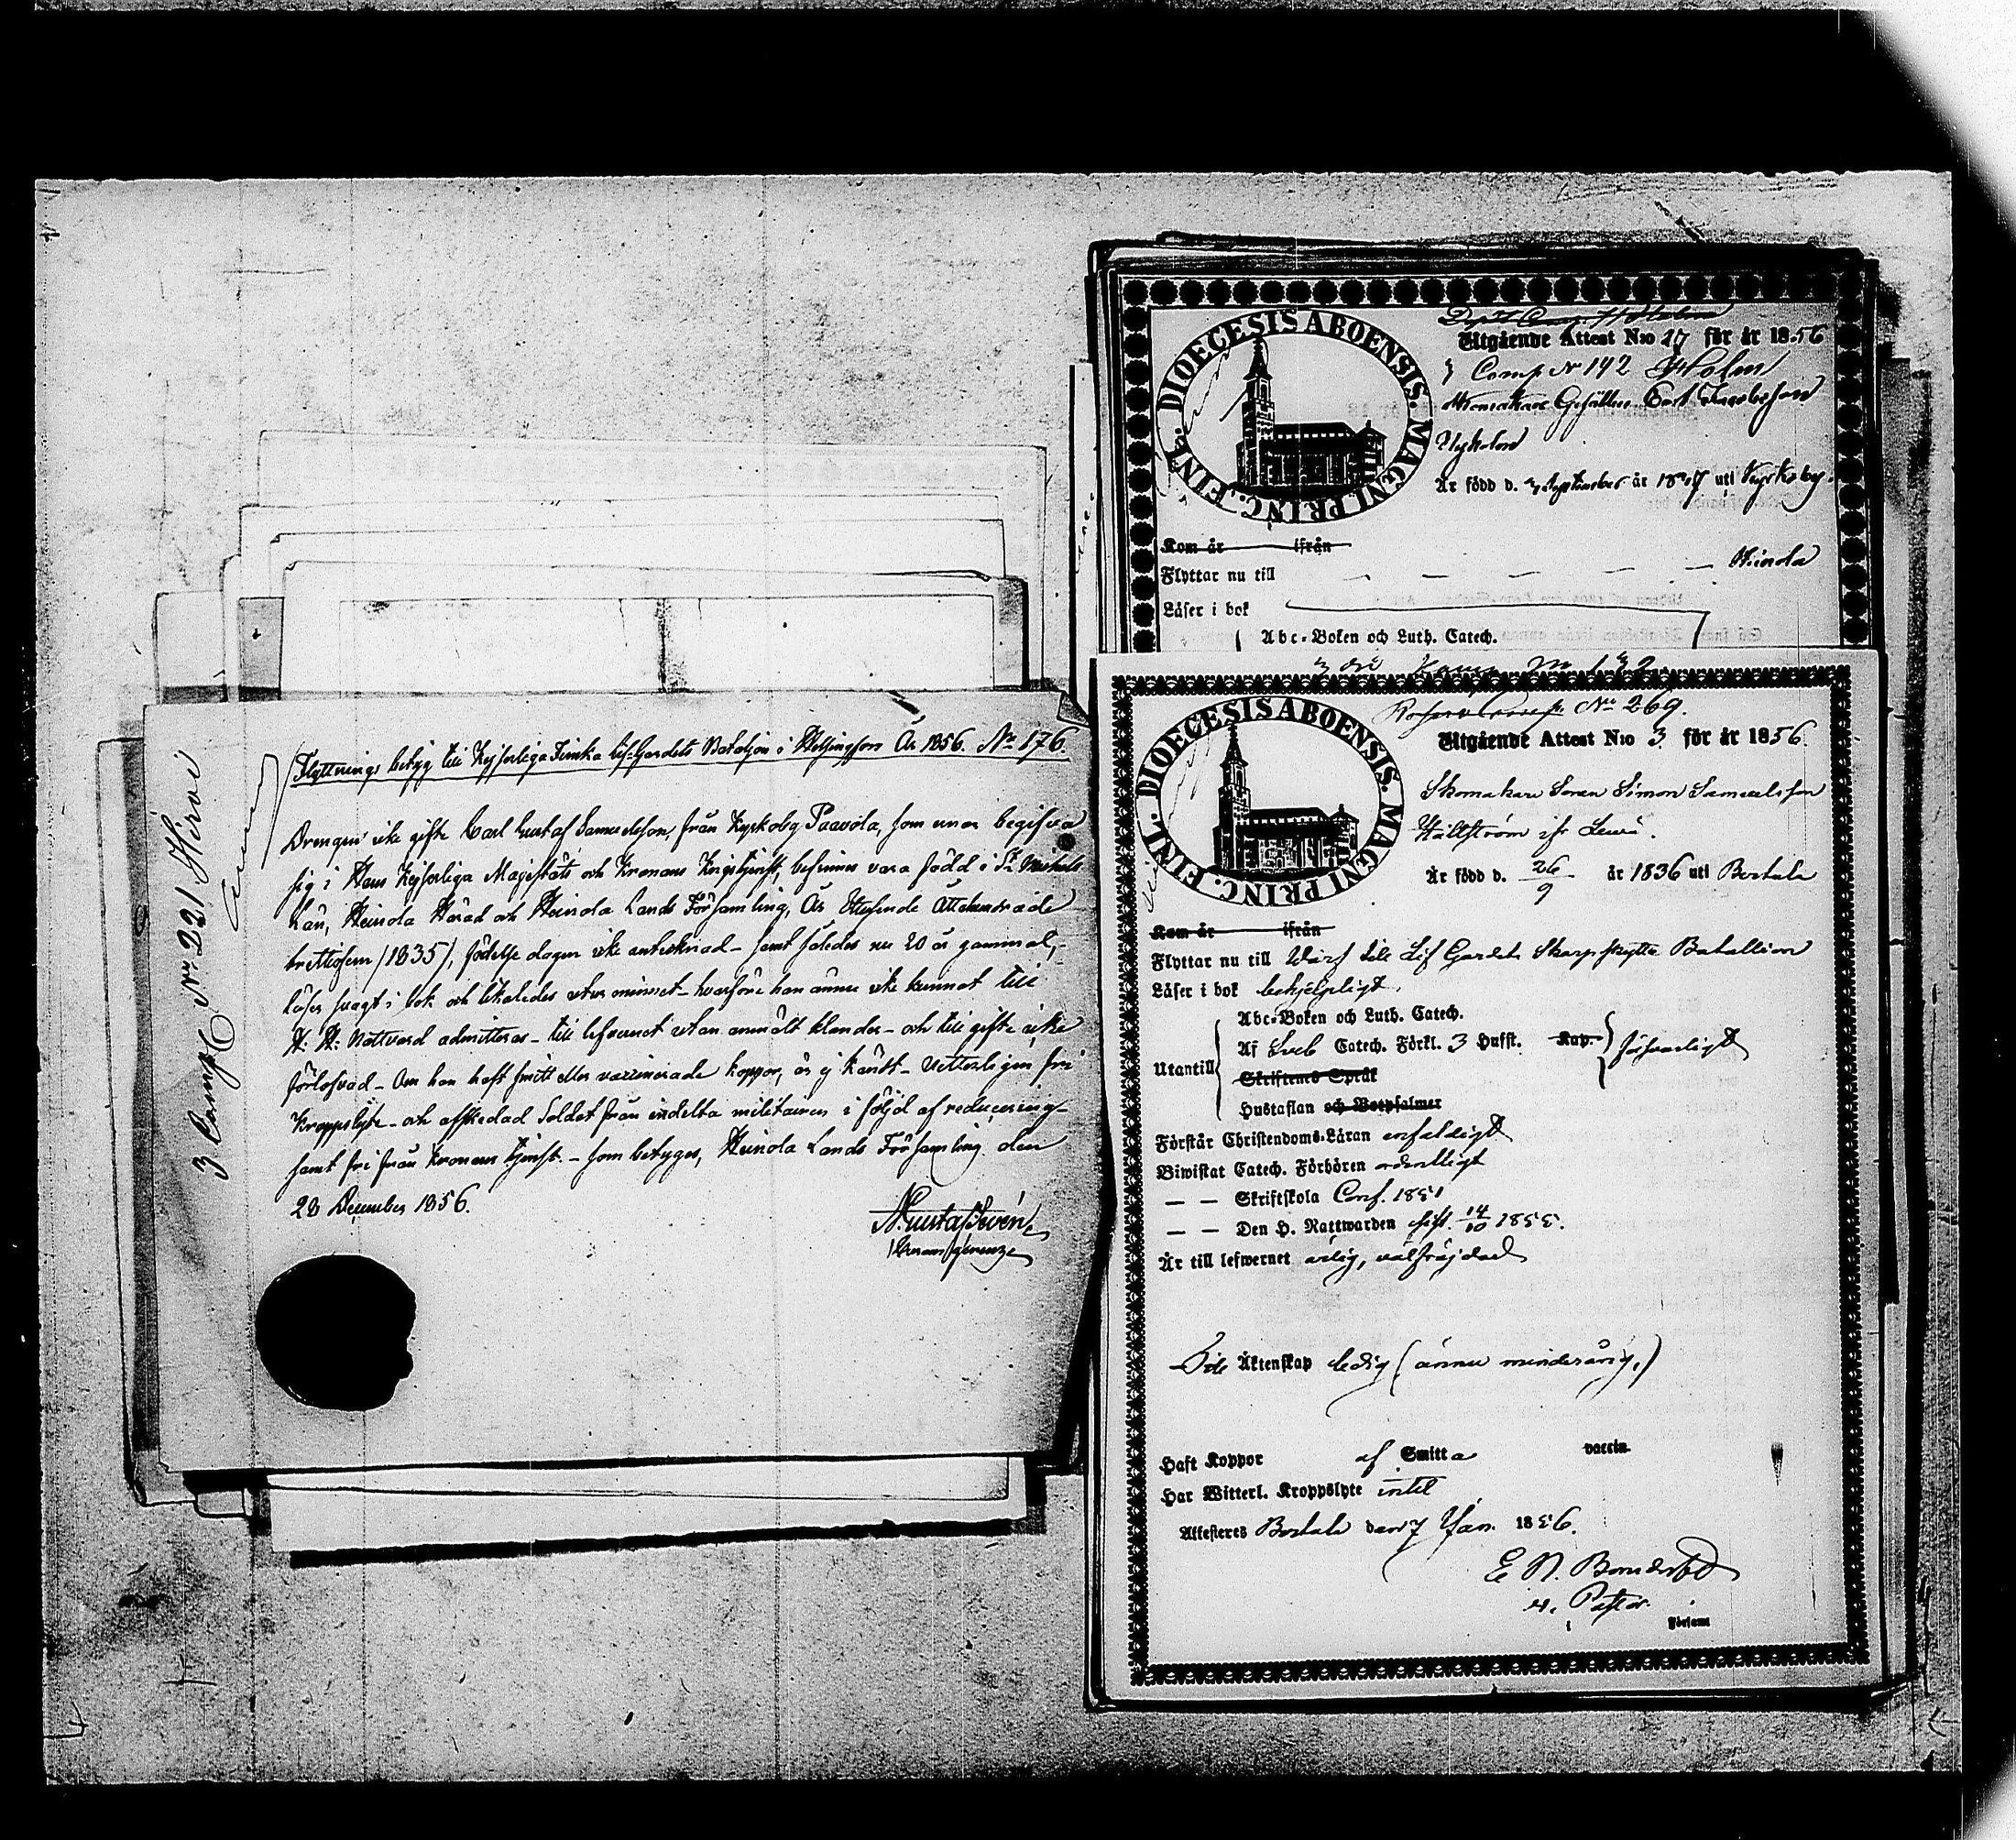 3 Comp. Nr 221 Hirvi
Flyttnings betyg till Kejserliga Finska Lif-Gardets Bataljon i Helsingfors År 1856. No 176.
Drengen icke gifte Carl Gustaf Samuelsson, från Kyrkoby Paavola, som ernar begifva
sig i Hans Kejserliga Majestäts och Kronans Krigstjenst, befinnes vara född i St Michels
Län, Heinola Härad och Heinola Lands Församling, År Ettusende Åttahundrade
trettiofem (1835), födelse dagen icke antecknad – samt således nu 20 år gammal,
läser svagt i bok och likaledes utur minnet – hvarföre han ännu icke kunnat till
H. H. Nattvard admitteras – till lefvernet utan anmält klander – och till gifte icke
förlofvad – Om han haft smitt eller vaccinerade koppor, är ej kändt – Vetterligen fri
Kroppslyte – och afskedad Soldat från indelta militairen i följd af reducering –
samt fri från Kronans tjenst – som betygas, Heinola Lands Församling den
28 December 1856.
DIOECESIS ABOENSIS. MAGNI PRINC. FINL.
Utgående Attest N:o 27 för år 1856
3 Comp Nr 142 Holm
Gesällen Carl
Är född d. September år uti Kyrkoby.
Kom år ifrån
Flyttar nu till – – – – – Heinola
Läser i bok
Abc-Boken och Luth. Catech.
3 Comp No 132
No 269.
DIOECESIS ABOENSIS. MAGNI PRINC. FINL.
Utgående Attest N:o 3 för år 1856.
Skomakare Sonen Simon Samuelsson
Hällström
Är född d. 26/9 år 1836 uti Bertula
Kom år ifrån
Flyttar nu till Lif Gardets Skarpskytte Batallion
Läser i bok behjelpligt.
Abc-Boken och Luth. Catech.
Utantill Af Sveb Catech. Förkl. 3 Hufst. Kap. försvarligt
Skriftenes Språk
Hustaflan och Botpsalmer
Förstår Christendoms-Läran enfaldigt
Biwistat Catech. Förhören ordentligt
— — Skriftskola Conf. 1851
— — Den H. Nattwarden sist. 14/10 1855.
Är till lefwernet ärlig, välfräjdad
Till Äktenskap ledig (ännu minderårig.)
Haft Koppor af Smitta vaccin.
Har Witterl. Kroppslyte intet
Attesteras den 7 Jan. 1856.
Pastor.
Församl